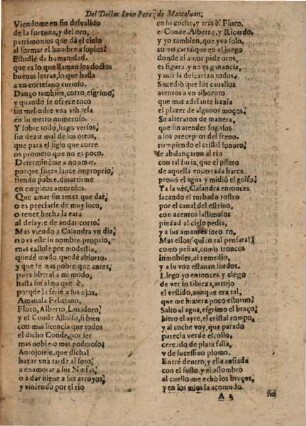 Del Doctor Iuan Perez de Montaluan.
Viendome en fin desvalido
de la fortuna, y del oro,
patrimonios que dà el cielo
al formar el hombre a soplos:
Estudiè de humanidad,
que es lo que llaman los doctos
buenas letras, lo que basta
a un cortesano curioso.
Dançò tambien, corro, esgrimo,
y quando se ofrece toco
sin mal odio una vihuela
en su metro numeroso.
Y sobre todo, hago versos,
sin dezir mal de los otros,
que para el siglo que corre
os prometo que no es poco.
Determinème a amarme,
porque fuera lance impropio,
siendo pobre, divertirme
en empleos amorosos.
Que amar sin tener que dar,
o es preciarse de muy loco,
o tener hecha la cara
al desayre de andar corto.
Mas viendo a Casandra un dia,
no es este su nombre proprio,
mas callole por modestia,
quedè mudo, quedè absorto,
y quedè mas pobre que antes,
pues liberal a mi modo,
hasta el alma que
porque la sirva a sus ojos.
Amauala Feliciano,
Floro, Alberto, Lucidoro,
y el Conde Astolfo, si bien
con mas licencia que todos
el dicho Conde, por ser
mas noble o mas poderoso:
Arrojose, que dicha!
baxar una tarde al soto,
a enamorar sus Ninfas,
o a dar nieve a sus arroyos,
y viniendo por el rio
en su coche, y tras èl Floro,
el Conde, Alberto, y Licardo,
y yo tambien, que ya solo,
como cortaipe en el juego
donde el amor pide oros,
es figura, y no es ganancia,
y assi la descartan todos.
Sucediò, que los cavallos
vieron en un alboroto
que mas adelante hazia
el plaçer de unos moços.
Se alteraron de manera,
que sin atender fogosos
a los preceptos del freno,
rompiendo el cristal sonoro,
se abalançaron al rio
con tal furia, que el piloto
de aquella encantada barca
provò el agua, y midiò el golfo.
Ya la vès, Calandra entonces
sacando el turbado rostro
por el canzel del estrivo,
con acentos lastimosos
piedad al cielo pedia,
y a sus amantes socorro.
Mas ellos (quien tal pensara!)
como peñas, como troncos
inmobles, se miravan,
y a su voz estavan sordos.
Llego yo entonces, y dexo
de ver su tibieza, arrojo
el vestido, aunque era tal,
que me hiziera poco estorvo.
Salto al agua, esgrimo el braço,
hiero el ayre, el cristal rompo,
y al coche voy, que parado
parecia verde escollo,
cercado de plata falsa,
y de sucession plomo.
Entrè dentro, y ella assida
con el susto, y el assombro
al cuello me echò los braços,
y en los mios la acomodo.
A 3
sin